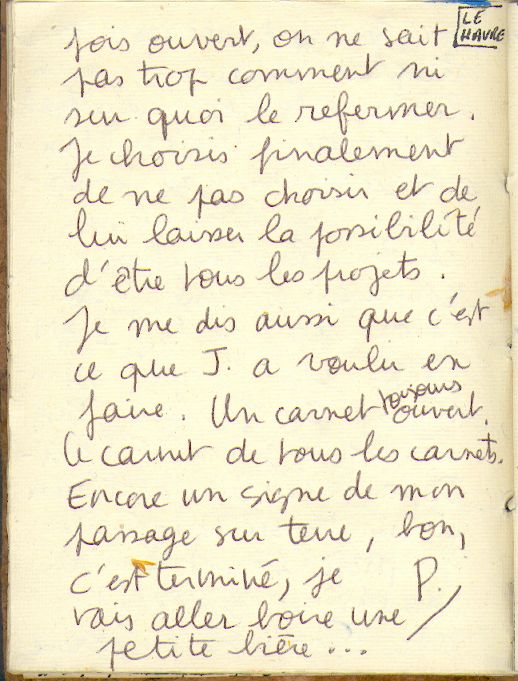 LE
HAVRE
fois ouvert, on ne sait
pas trop comment ni
sur quoi le refermer.
Je choisis finalement
de ne pas choisir et de
lui laisser la possibilité
d'être tous les projets.
Je me dis aussi que c'est
ce que J. a voulu en
faire. Un carnet toujours ouvert.
Le carnet de tous les carnets.
Encore un signe de mon
passage sur terre, bon,
c'est terminé, je
vais aller boire une
petite bière...
P.